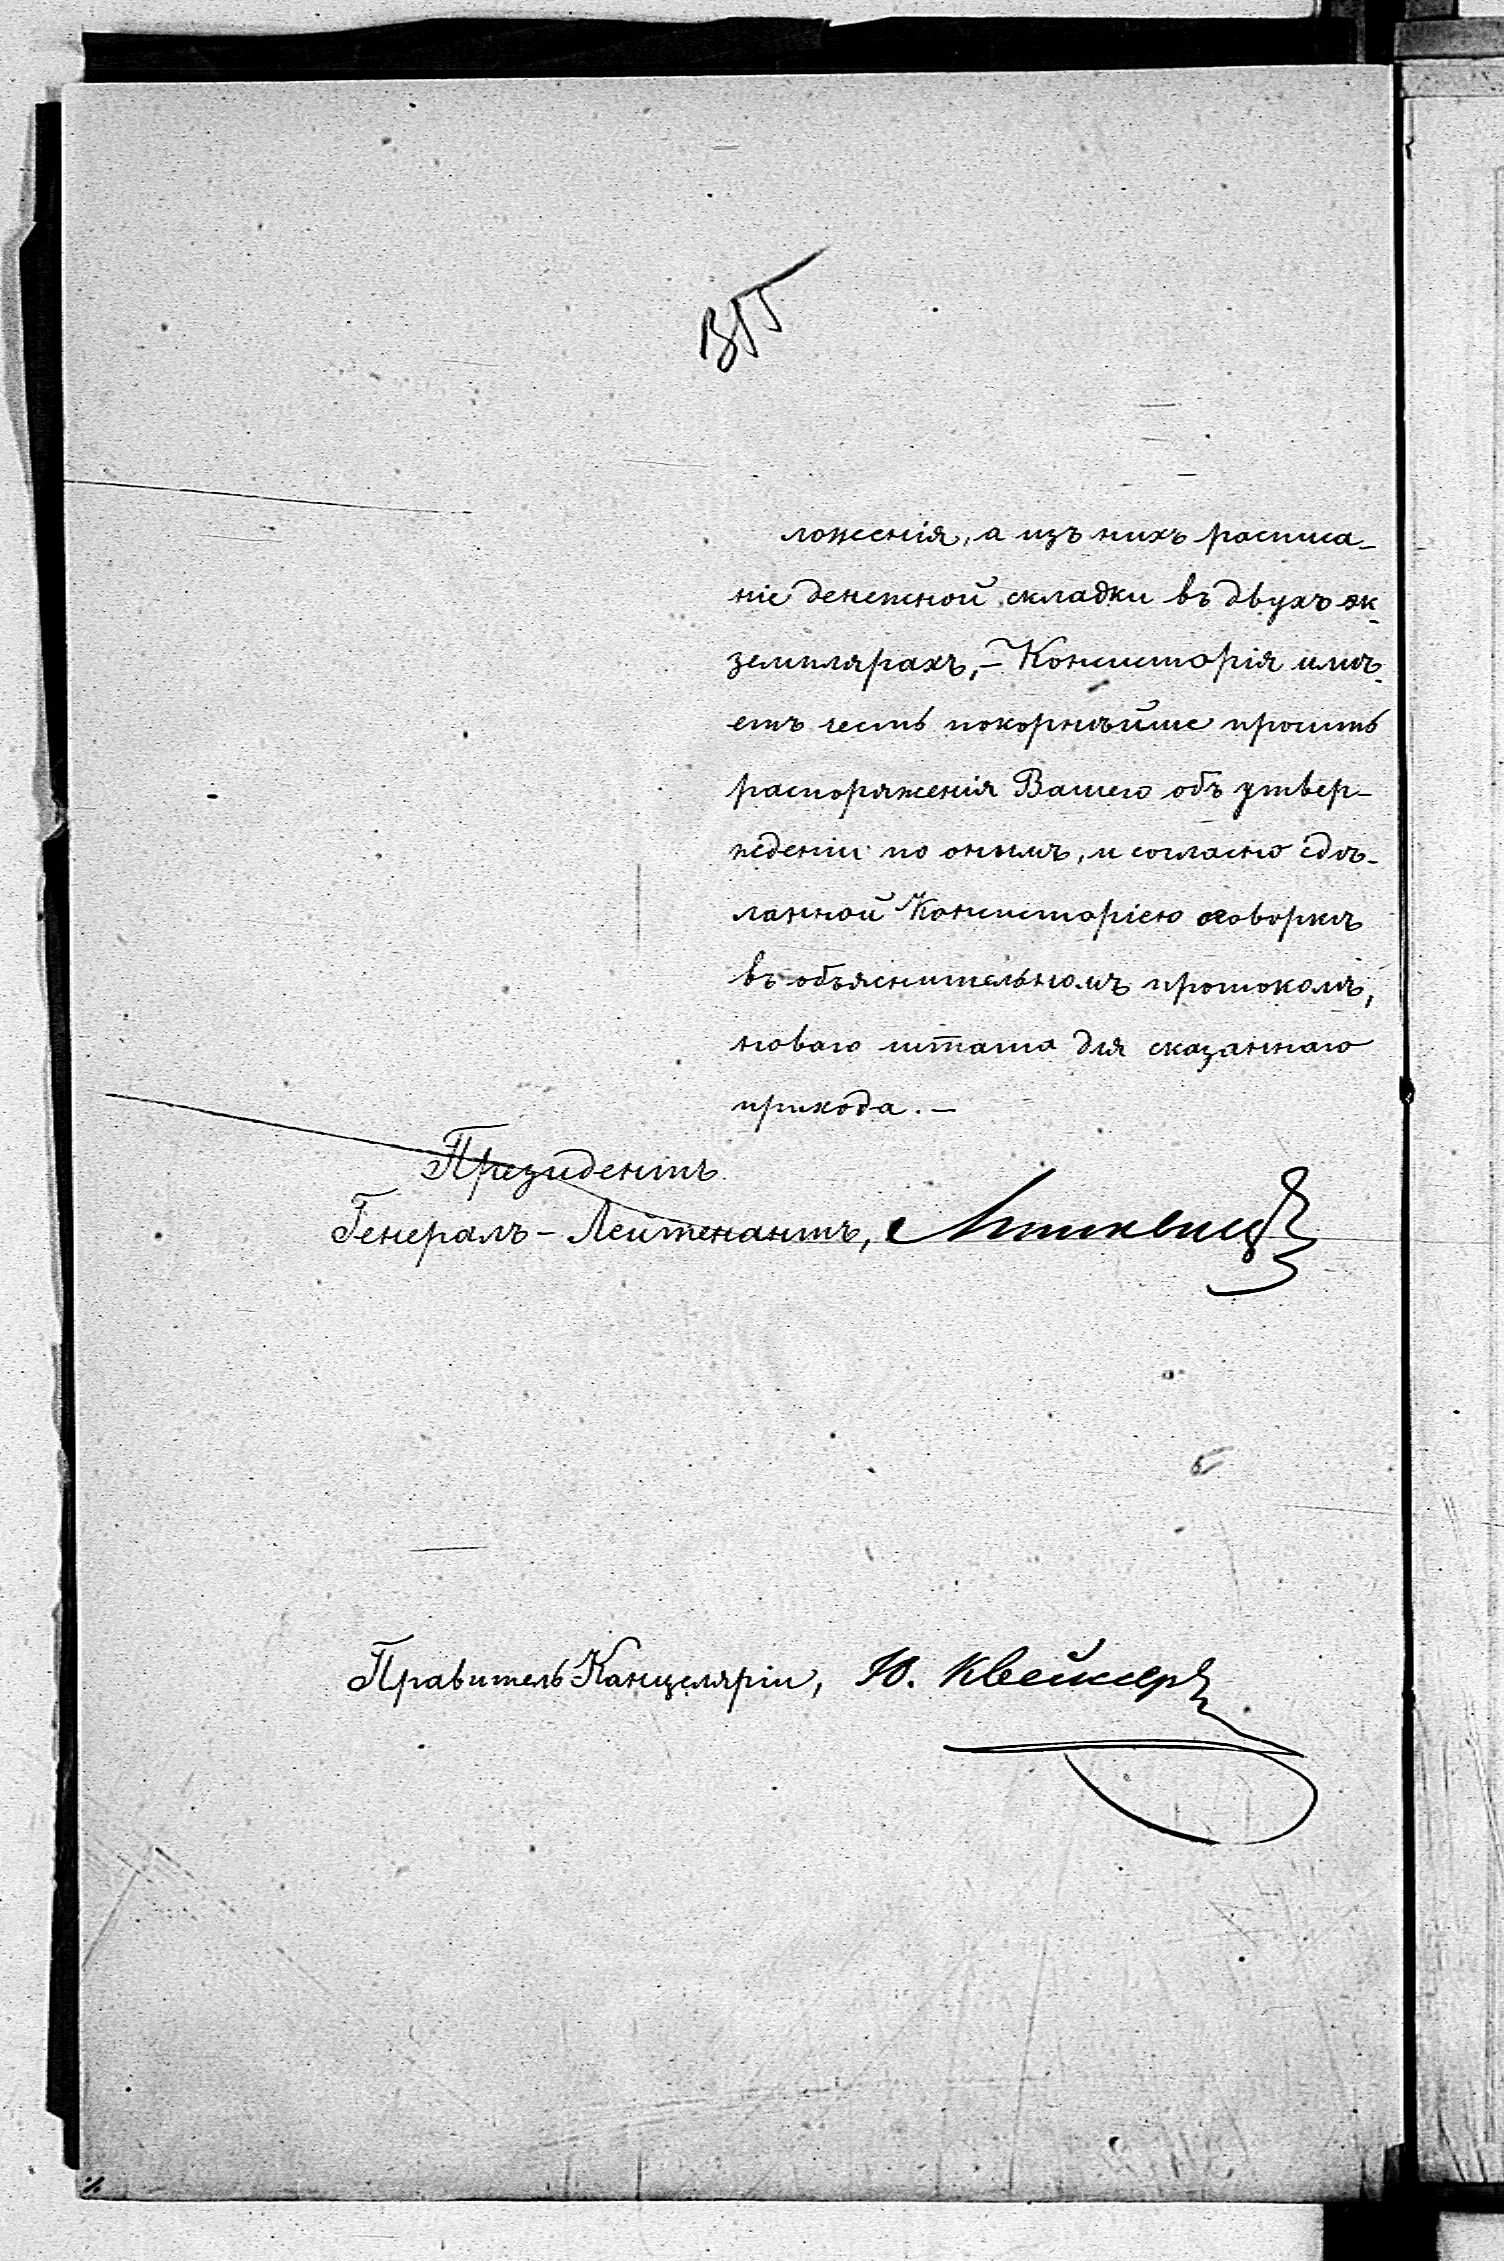 ложенія, а изъ нихъ росписа-
ніе денежной складки въ двухъ эк-
земплярахъ, – Консисторія имѣ-
етъ честь покорнѣйше просить
распоряженія Вашего объ утвер-
жденіи по онымъ, и согласно сдѣ-
ланной Консисторіею оговоркѣ
въ объяснительномъ протоколѣ,
новаго штата для сказаннаго
прихода. –
Президентъ
Генералъ-Лейтенантъ,
Правитель Канцеляріи, Ю.